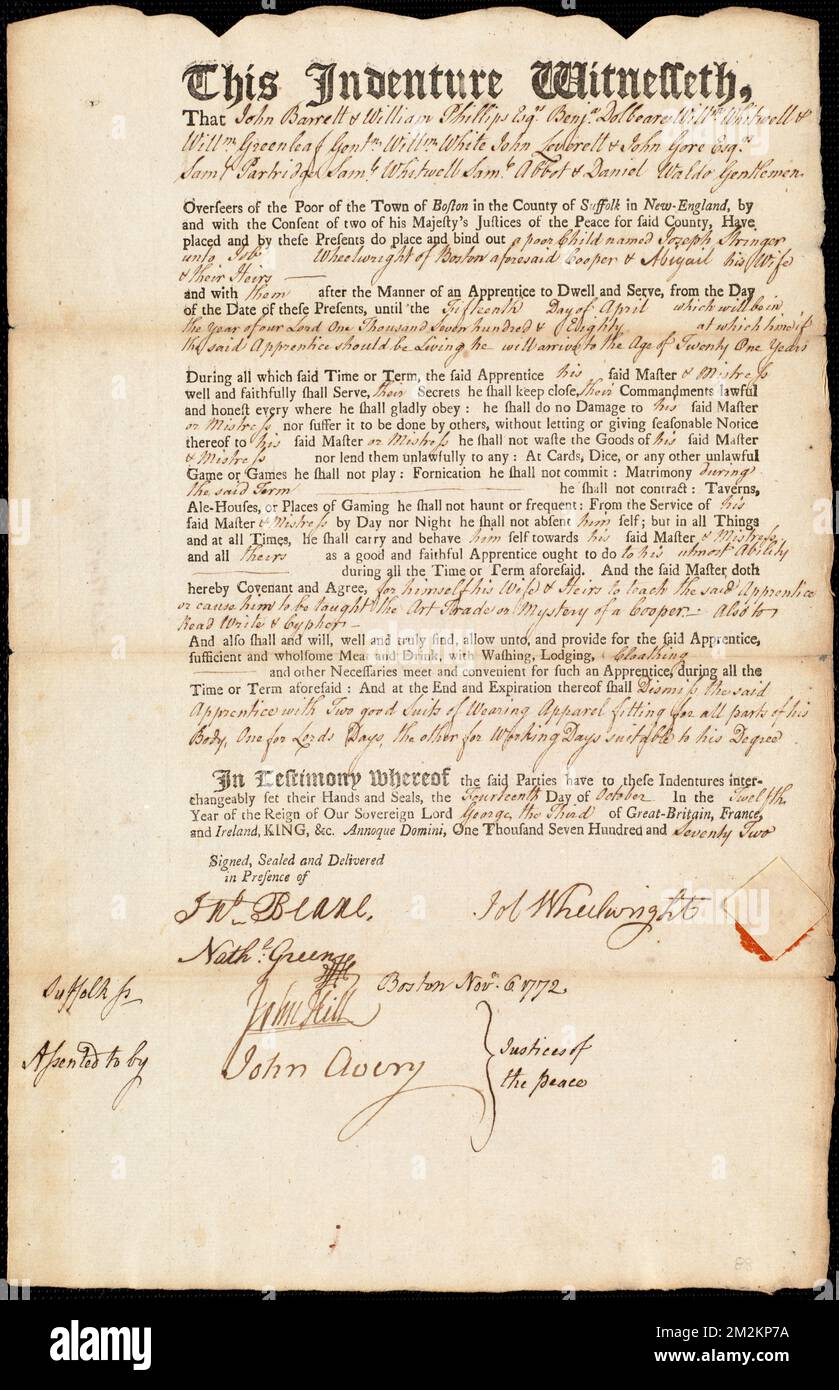 This Indenture Witnesseth,
That John Barrett & William Phillips Esqrs. Benja. Dolbeare Willm. Whitwell &
Willm. Greenleaf Gentn. Willm. White John Leverett & John Gore Esqrs.
Saml. Partridge Saml. Whitwell Saml. Abbot & Daniel Waldo Gentlemen
Overseers of the Poor of the Town of Boston in the County of Suffolk in New-England, by
and with the Consent of two of his Majesty's Justices of the Peace for said County, Have
placed and by these Presents do place and bind out a poor Child named Joseph Stringer
unto Job Wheelwright of Boston aforesaid Cooper & Abigail his Wife
& their Heirs
and with them after the Manner of an Apprentice to Dwell and Serve, from the Day
of the Date of these Presents, until the Fifteenth Day of April which will be in
the Year of our Lord One Thousand Seven hundred & Eighty at which time if
the said Apprentice should be Living he will arrive to the Age of Twenty One Years
During all which said Time or Term, the said Apprentice his said Master & Mistress
well and faithfully shall Serve, their Secrets he shall keep close, their Commandments lawful
and honest every where he shall gladly obey: he shall do no Damage to his said Master
or Mistress nor suffer it to be done by others, without letting or giving seasonable Notice
thereof to his said Master or Mistress he shall not waste the Goods of his said Master
& Mistress nor lend them unlawfully to any: At Cards, Dice, or any other unlawful
Game or Games he shall not play: Fornication he shall not commit: Matrimony during
the said Term he shall not contract: Taverns,
Ale-Houses, or Places of Gaming he shall not haunt or frequent: From the Service of his
said Master & Mistress by Day nor Night he shall not absent him self; but in all Things
and at all Times, he shall carry and behave him self towards his said Master & Mistress
and all theirs as a good and faithful Apprentice ought to do to his utmost Ability
during all the Time or Term aforesaid. And the said Master doth
hereby Covenant and Agree, for himself his Wife & Heirs to teach the said Apprentice
or cause him to be taught the Art Trade or Mystery of a Cooper - Also to
Read Write & Cypher -
And also shall and will, well and truly find, allow unto, and provide for the said Apprentice,
sufficient and wholsome Meat and Drink, with Washing, Lodging, Cloathing
and other Necessaries meet and convenient for such an Apprentice, during all the
Time or Term aforesaid: And at the End and Expiration thereof shall Dismiss the said
Apprentice with Two good Suits of Wearing Apparel fitting for all parts of his
Body, One for Lords Days, the other for Working Days suitable to his Degree
In Testimony whereof the said Parties have to these Indentures inter-
changeably set their Hands and Seals, the Fourteenth Day of October In the Twelfth
Year of the Reign of Our Sovereign Lord George the Third of Great-Britain, France,
and Ireland, KING, &c. Annoque Domini, One Thousand Seven Hundred and Seventy Two
Signed, Sealed and Delivered
in Presence of
Jno. Beane. Job Wheelwright
Nathl. Greene
Suffolk ss Boston Novr. 6 1772
John Hill
Assented to by John Avery Justices of
the peace
88
alamy
Image ID: 2M2KP7A
www.alamy.com